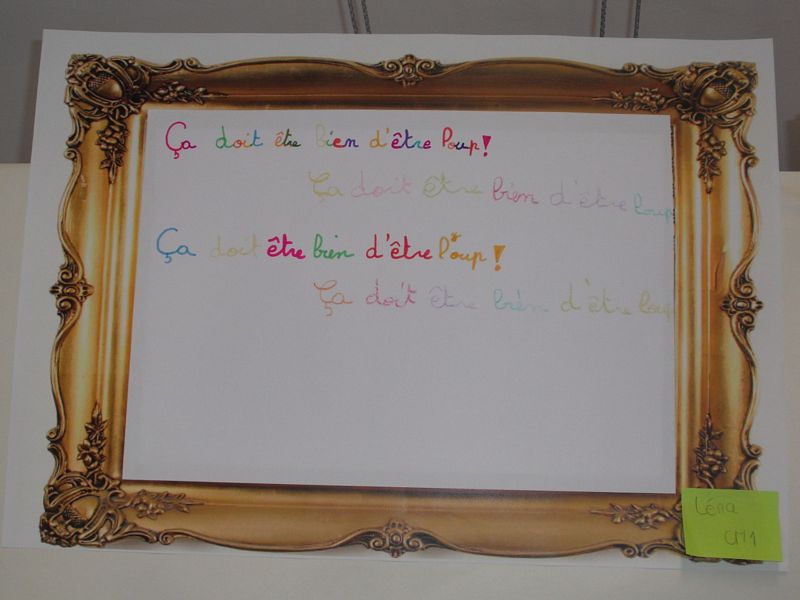 Ça doit être bien d'être loup!
Ça doit être bien d'être loup
Ça doit être bien d'être loup!
Ça doit être bien d'être loup
Léna
CM1